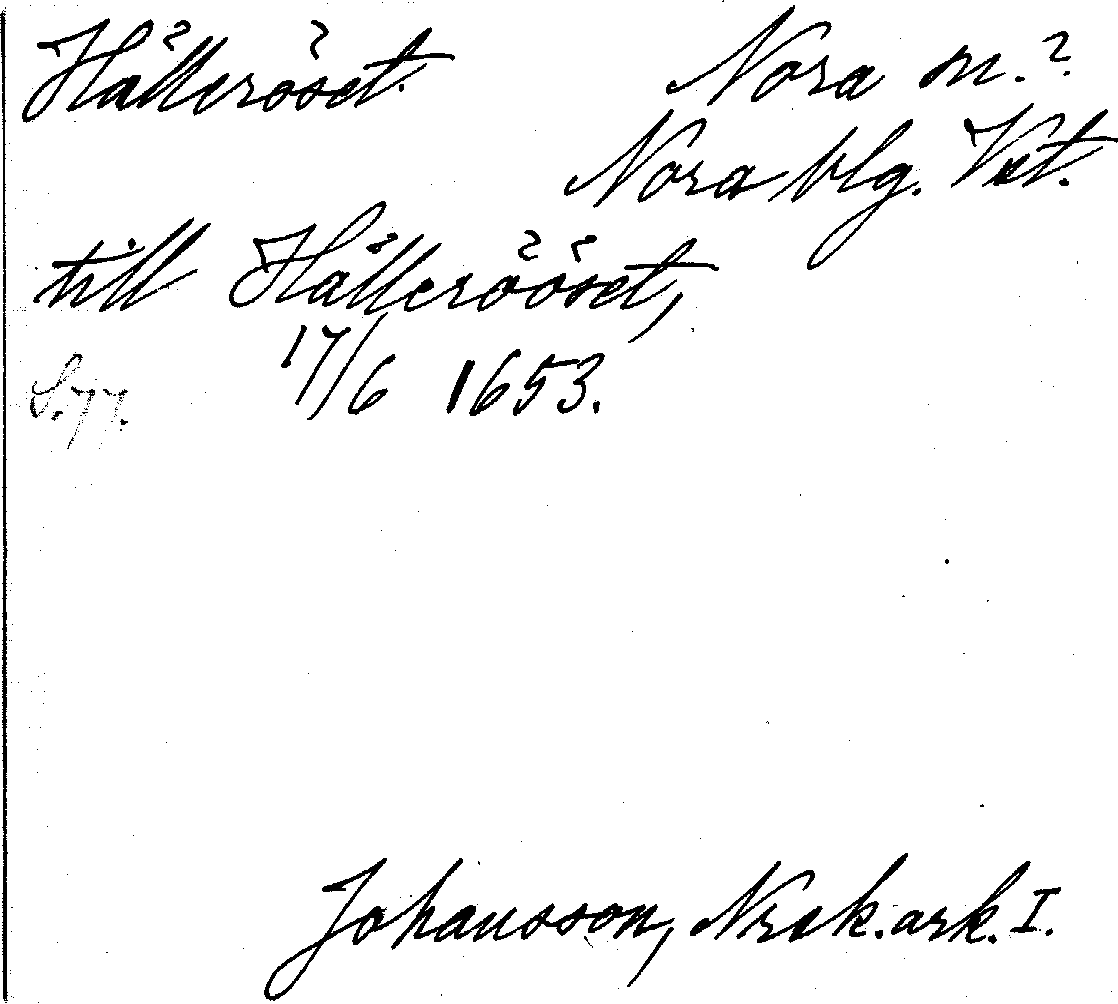 Hälleröset. Nora m.?
Nora blg. Vst.
till Hällerööset,
17/6 1653.
S. 77.
Johansson, Nrak. ark. I.